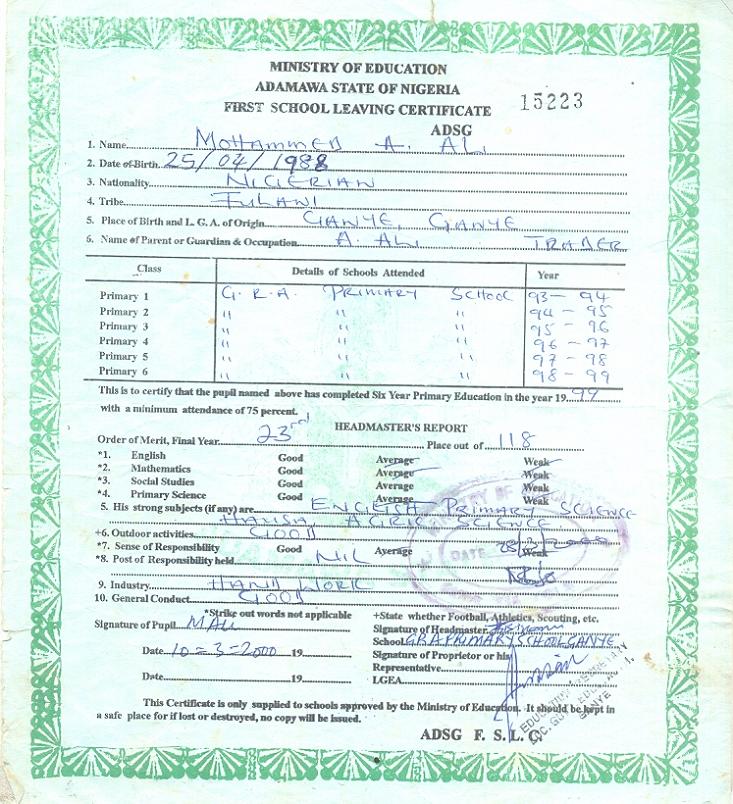 MINISTRY OF EDUCATION
ADAMAWA STATE OF NIGERIA
FIRST SCHOOL LEAVING CERTIFICATE 15223
ADSG
1. Name MOHAMMED A. ALI
2. Date of Birth 25/04/1988
3. Nationality NIGERIAN
4. Tribe FULANI
5. Place of Birth and L. G. A. of Origin GANYE, GANYE
6. Name of Parent or Guardian & Occupation A. ALI TRADER
Class Details of Schools Attended Year
Primary 1 G. R. A. PRIMARY SCHOOL 93 - 94
Primary 2 " " " 94 - 95
Primary 3 " " " 95 - 96
Primary 4 " " " 96 - 97
Primary 5 " " " 97 - 98
Primary 6 " " " 98 - 99
This is to certify that the pupil named above has completed Six Year Primary Education in the year 19 99
with a minimum attendance of 75 percent.
HEADMASTER'S REPORT
Order of Merit, Final Year 23rd Place out of 118
*1. English Good Average Weak
*2. Mathematics Good Average Weak
*3. Social Studies Good Average Weak
*4. Primary Science Good Average Weak
5. His strong subjects (if any) are ENGLISH PRIMARY SCIENCE
HAUSA, AGRIC SCIENCE
+6. Outdoor activities GOOD
*7. Sense of Responsibility Good Average Weak
*8. Post of Responsibility held NIL
MINISTRY OF EDUCATION
DATE
9. Industry HAND WORK
10. General Conduct GOOD
*Strike out words not applicable +State whether Football, Athletics, Scouting, etc.
Signature of Pupil MALI Signature of Headmaster
School GRA PRIMARY SCHOOL GANYE
Date 10=3=2000 19 Signature of Proprietor or his
Representative
Date 19 LGEA
EDUCATION SECRETARY
LOC. GOVT. EDUC. AUT.
GANYE
This Certificate is only supplied to schools approved by the Ministry of Education. It should be kept in
a safe place for if lost or destroyed, no copy will be issued.
ADSG F. S. L. C.